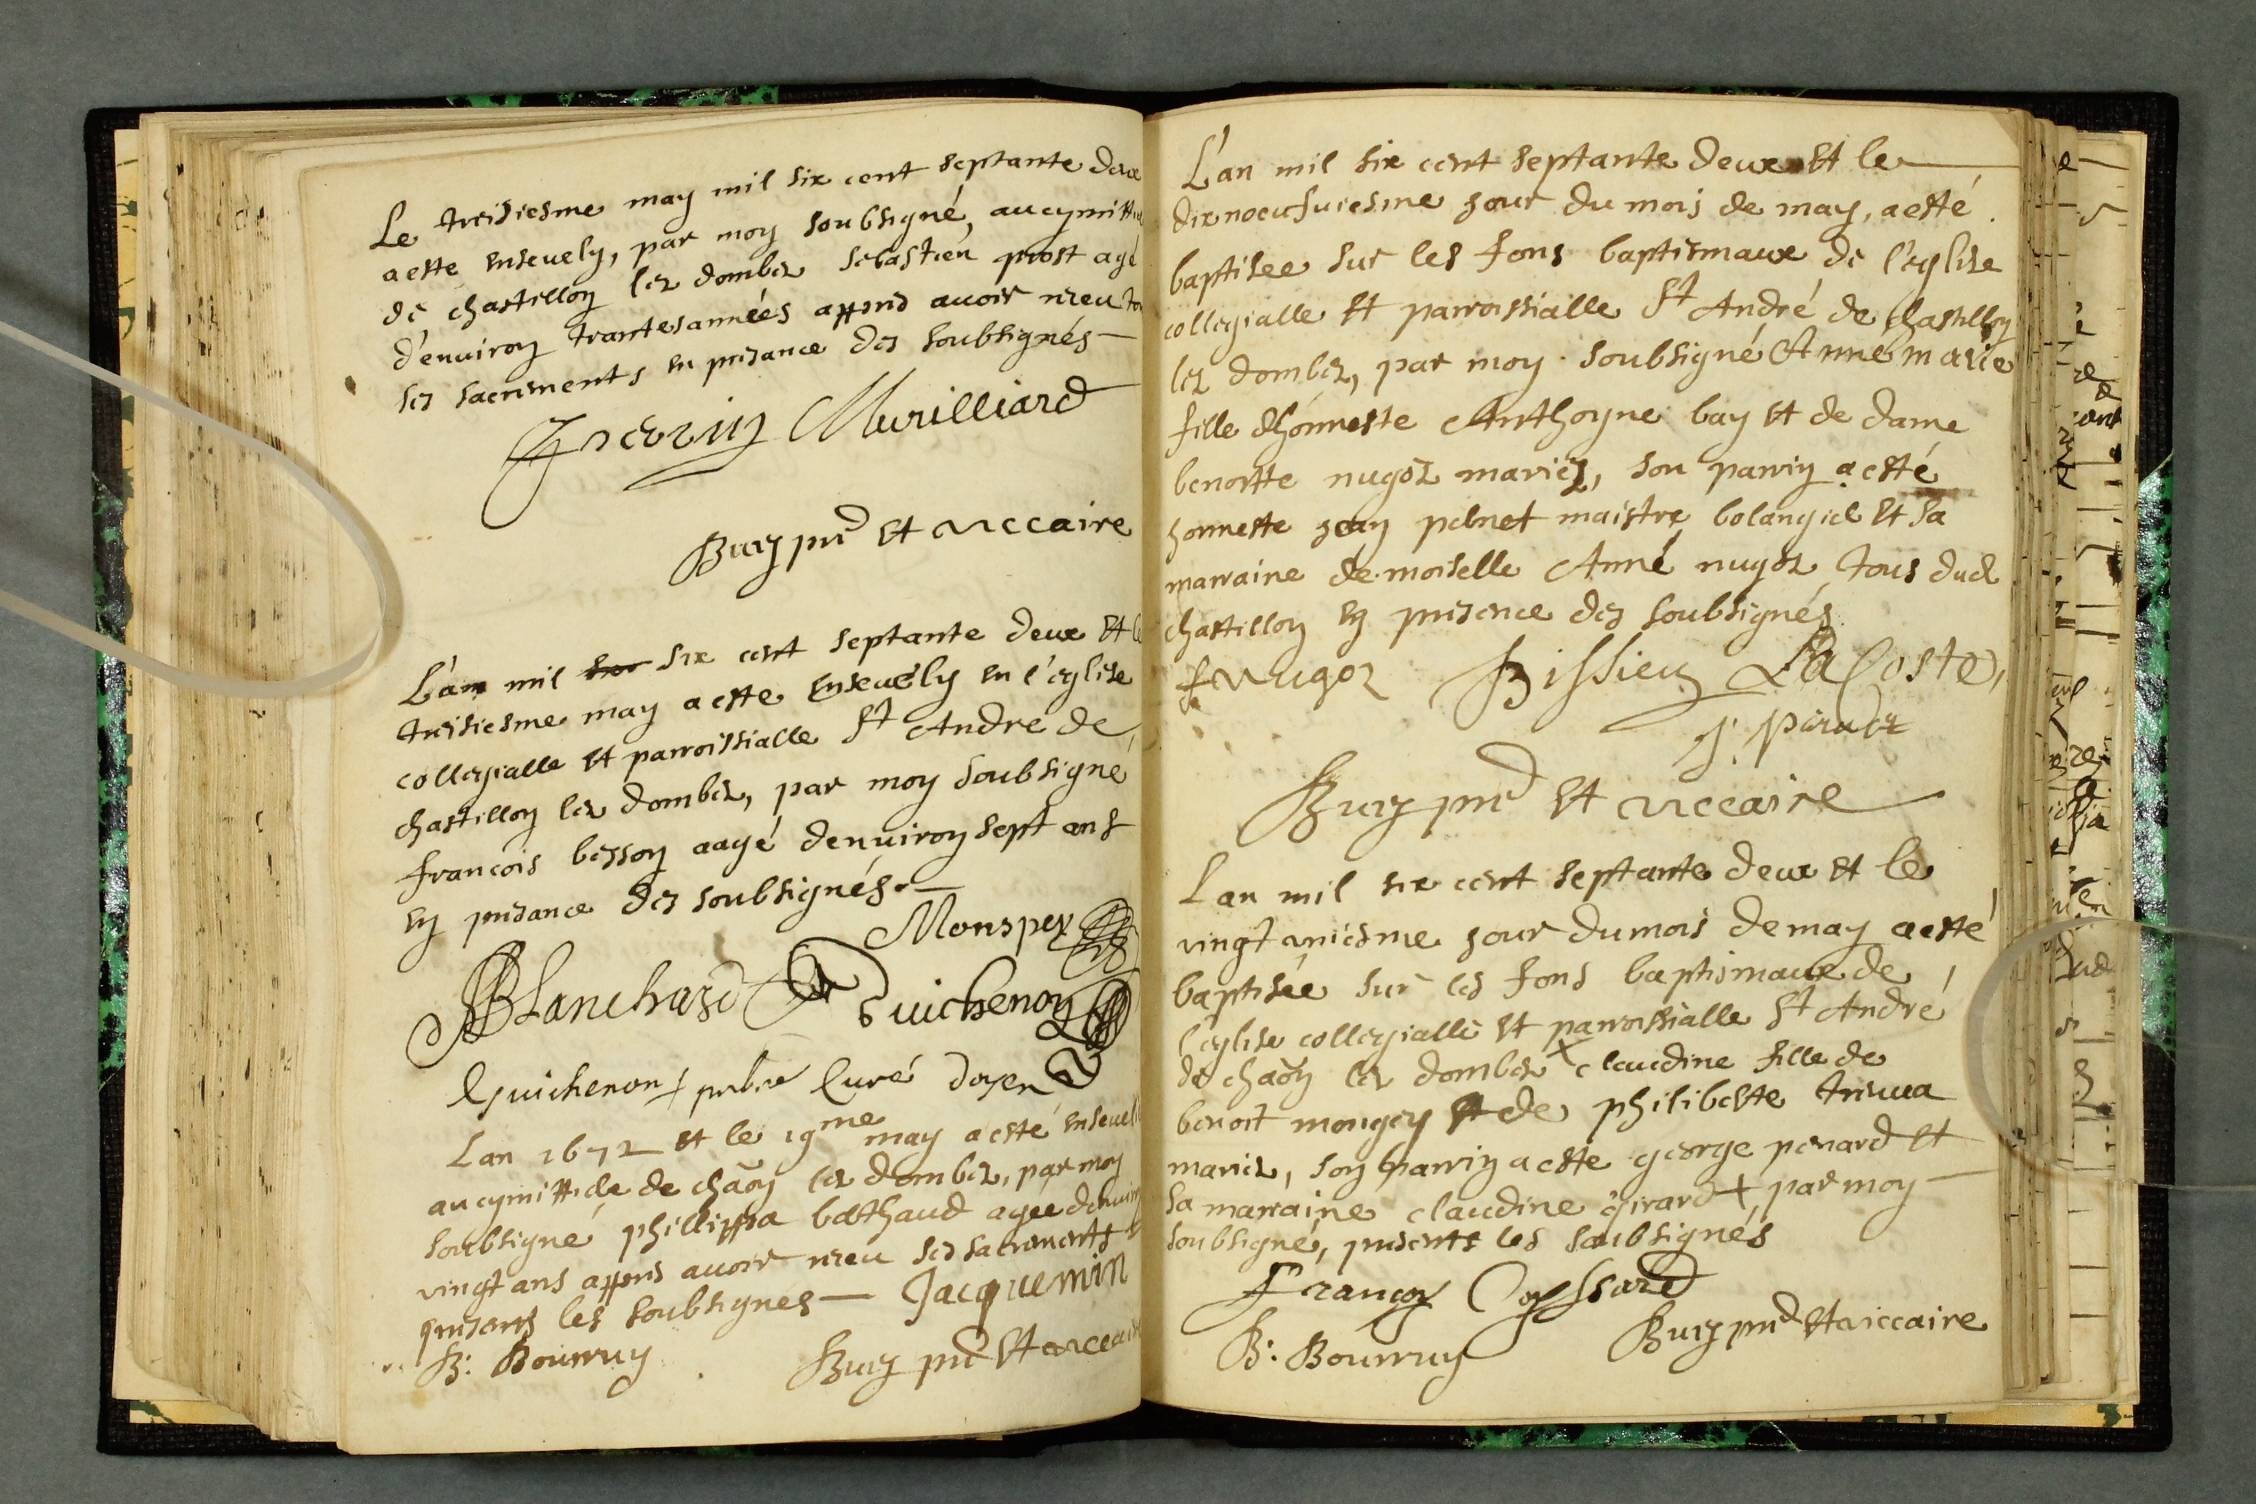 Le treisiesme may mil six cent septante deux
a este ensevely, par moy soubsigné, au cymitti
de chastillon lez dombes sebastien prost agé
d'environ trantes années appres avoir receu to
ses sacrements en presance des soubsignés
Murilliard
Bury pnt et viccaire
L'an mil six cent septante deux et le
treisiesme may a este ensevely en l'eglise
collegialle et parroissialle St Andre de
chastillon lez dombes, par moy soubsigné
francois besson aagé denviron sept ans
en presance des soubsignés
Monspey
Blanchard Guichenon
Guichenon pnbre Curé doyen
Lan 1672 et le 19me may a esté ensevel
au cymittiere de chaon lez dombes, par moy
soubsigné phillippa bathaud agée denviro
vingt ans appres avoir receu ses sacrements
presents les soubsignes Jacquemin
B: Bourruy Bury pnt et viccair
L'an mil six cent septante deux et le
dixnoeufviesme jour du mois de may, a esté
baptisee sur les fons baptismaux de l'eglise
collegialle et parroissialle St André de chastillon
lez dombes, par moy soubsigné Anne marie
fille dhonneste Anthoyne bay et de dame
benoitte nugoz mariez, son parrin a esté
honneste jean pernet maistre bolangier et sa
marraine demoiselle Anne nugoz tous dud
chastillon en presence des soubsignés
f Nugoz Bissieu LaCoste,
Bury pnt et viccaire
Lan mil six cent septante deux et le
vingt uniesme jour du mois de may a esté
baptisée sur les fons baptismaux de
l'eglise collegialle et parroissialle St André
de chaon lez dombes x claudine fille de
benoit mongey et de philiberte
mariez, son parrin a este george penard et
sa marraine claudine girard +, par moy
soubsigné, presents les soubsignés
Françoy Cossard
B: Bourruy Bury pnt et viccaire